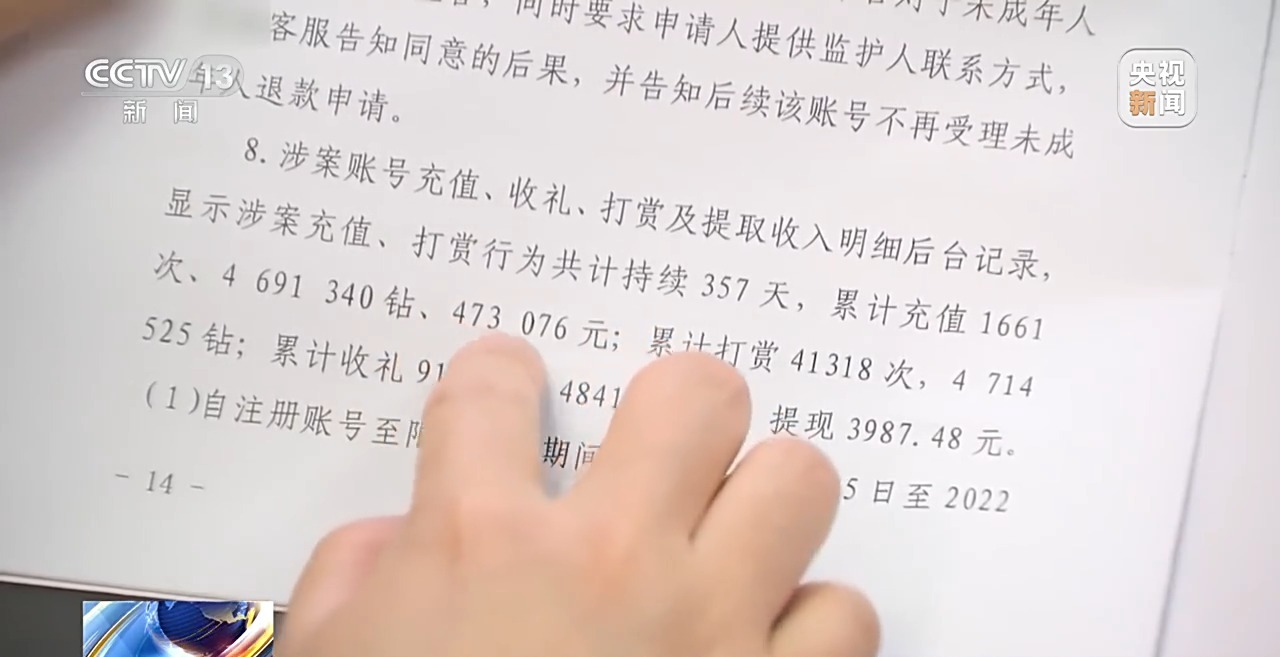 CCTV 13
新闻
央视
新闻
同时要求申请人提供监护人联系方式，
客服告知同意的后果，并告知后续该账号不再受理未成
年人退款申请。
8. 涉案账号充值、收礼、打赏及提取收入明细后台记录，
显示涉案充值、打赏行为共计持续 357 天，累计充值 1661
次、4 691 340 钻、473 076 元；累计打赏 41318 次，4 714
525 钻；累计收礼 91 4841 提现 3987.48 元。
(1)自注册账号至 期间 5 日至 2022
- 14 -